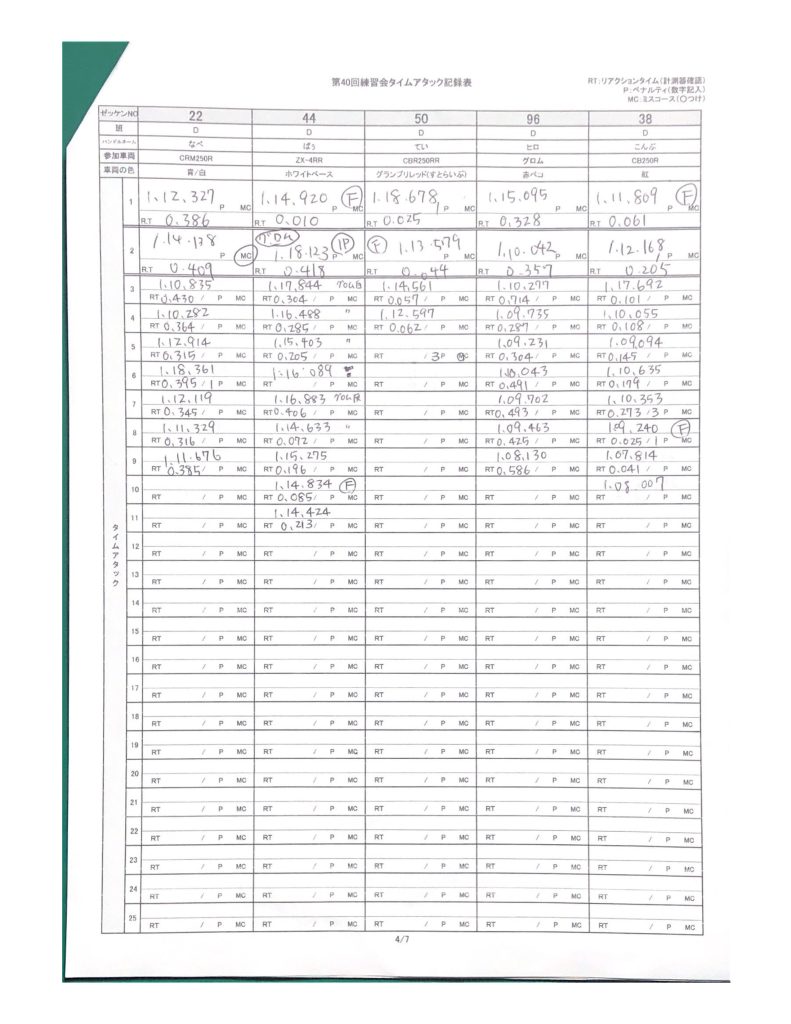 第40回練習会タイムアタック記録表
RT:リアクションタイム(計測器確認)
P:ペナルティ(数字記入)
MC:ミスコース(〇つけ)
ゼッケンNO 22 44 50 96 38
班 D D D D D
ハンドルネーム なべ ばぅ てい ヒロ こんぶ
参加車両 CRM250R ZX-4RR CBR250RR グロム CB250R
車両の色 青/白 ホワイトベース グランプリレッド(すとらいぷ) 赤ベコ 紅
タイムアタック
1 1,12,327 P MC 1,14,920 P MC F 1.18.678 1 P MC 1,15,095 P MC 1,11,809 P MC F
R.T 0.386 R.T 0.010 R.T 0.025 R.T 0.328 R.T 0.061
2 1.14.138 P MC グロム 1,18.123 1P P MC F 1.13.579 P MC 1,10.042 P MC 1.12.168 P MC
R.T 0.409 R.T 0.418 R.T 0.044 R.T 0.357 R.T 0.205
3 1,10,835 1,17,844 1.14,561 1.10.277 1,17.692
RT 0,430 / P MC RT 0,304 / P MC RT 0,057 / P MC RT 0,714 / P MC RT 0,101 / P MC
4 1,10,282 1,16.488 〃 1,12,597 1,09,735 1,10,055
RT 0,364 / P MC RT 0,285 / P MC RT 0,062 / P MC RT 0,287 / P MC RT 0,108 / P MC
5 1,12,914 1,15,403 〃 1,09,231 1,09,094
RT 0,315 / P MC RT 0,205 / P MC RT / 3 P MC RT 0,304 / P MC RT 0,145 / P MC
6 1,18,361 1,16,089 1,10,043 1,10,635
RT 0,395 / 1 P MC RT / P MC RT / P MC RT 0,491 / P MC RT 0,179 / P MC
7 1,12,119 1,16,883 1,09,702 1,10,353
RT 0,345 / P MC RT 0,406 / P MC RT / P MC RT 0,493 / P MC RT 0,273 / 3 P MC
8 1,11,329 1,14,633 〃 1,09,463 1,09,240 F
RT 0,316 / P MC RT 0,072 / P MC RT / P MC RT 0,425 / P MC RT 0,025 / 1 P MC
9 1,11,676 1,15,275 1,08,130 1,07,814
RT 0.385 / P MC RT 0,196 / P MC RT / P MC RT 0,586 / P MC RT 0,041 / P MC
10 1,14,834 F 1.08.007
RT / P MC RT 0,085 / P MC RT / P MC RT / P MC RT / P MC
11 1,14,424
RT / P MC RT 0,213 / P MC RT / P MC RT / P MC RT / P MC
12 RT / P MC RT / P MC RT / P MC RT / P MC RT / P MC
13 RT / P MC RT / P MC RT / P MC RT / P MC RT / P MC
14 RT / P MC RT / P MC RT / P MC RT / P MC RT / P MC
15 RT / P MC RT / P MC RT / P MC RT / P MC RT / P MC
16 RT / P MC RT / P MC RT / P MC RT / P MC RT / P MC
17 RT / P MC RT / P MC RT / P MC RT / P MC RT / P MC
18 RT / P MC RT / P MC RT / P MC RT / P MC RT / P MC
19 RT / P MC RT / P MC RT / P MC RT / P MC RT / P MC
20 RT / P MC RT / P MC RT / P MC RT / P MC RT / P MC
21 RT / P MC RT / P MC RT / P MC RT / P MC RT / P MC
22 RT / P MC RT / P MC RT / P MC RT / P MC RT / P MC
23 RT / P MC RT / P MC RT / P MC RT / P MC RT / P MC
24 RT / P MC RT / P MC RT / P MC RT / P MC RT / P MC
25 RT / P MC RT / P MC RT / P MC RT / P MC RT / P MC
4/7